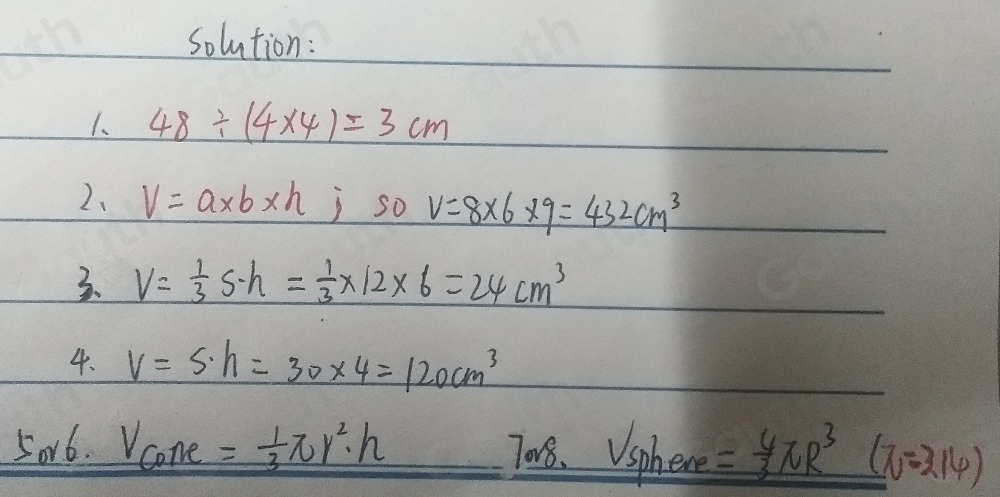 Solution:
1、 48 ÷ (4×4) = 3 cm
2、 V = a×b×h ; so V=8×6×9=432cm³
3、 V= 1/3 S·h = 1/3 ×12×6 =24 cm³
4. V = S·h = 30×4=120cm³
5or6. Vcone = 1/3 πr²·h 7or8、 Vsphere= 4/3 πR³ (π=3.14)